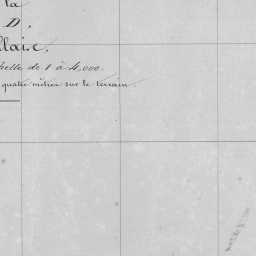 la
D.
llaie.
helle de 1 à 4,000.
quatre mètres sur le terrain.